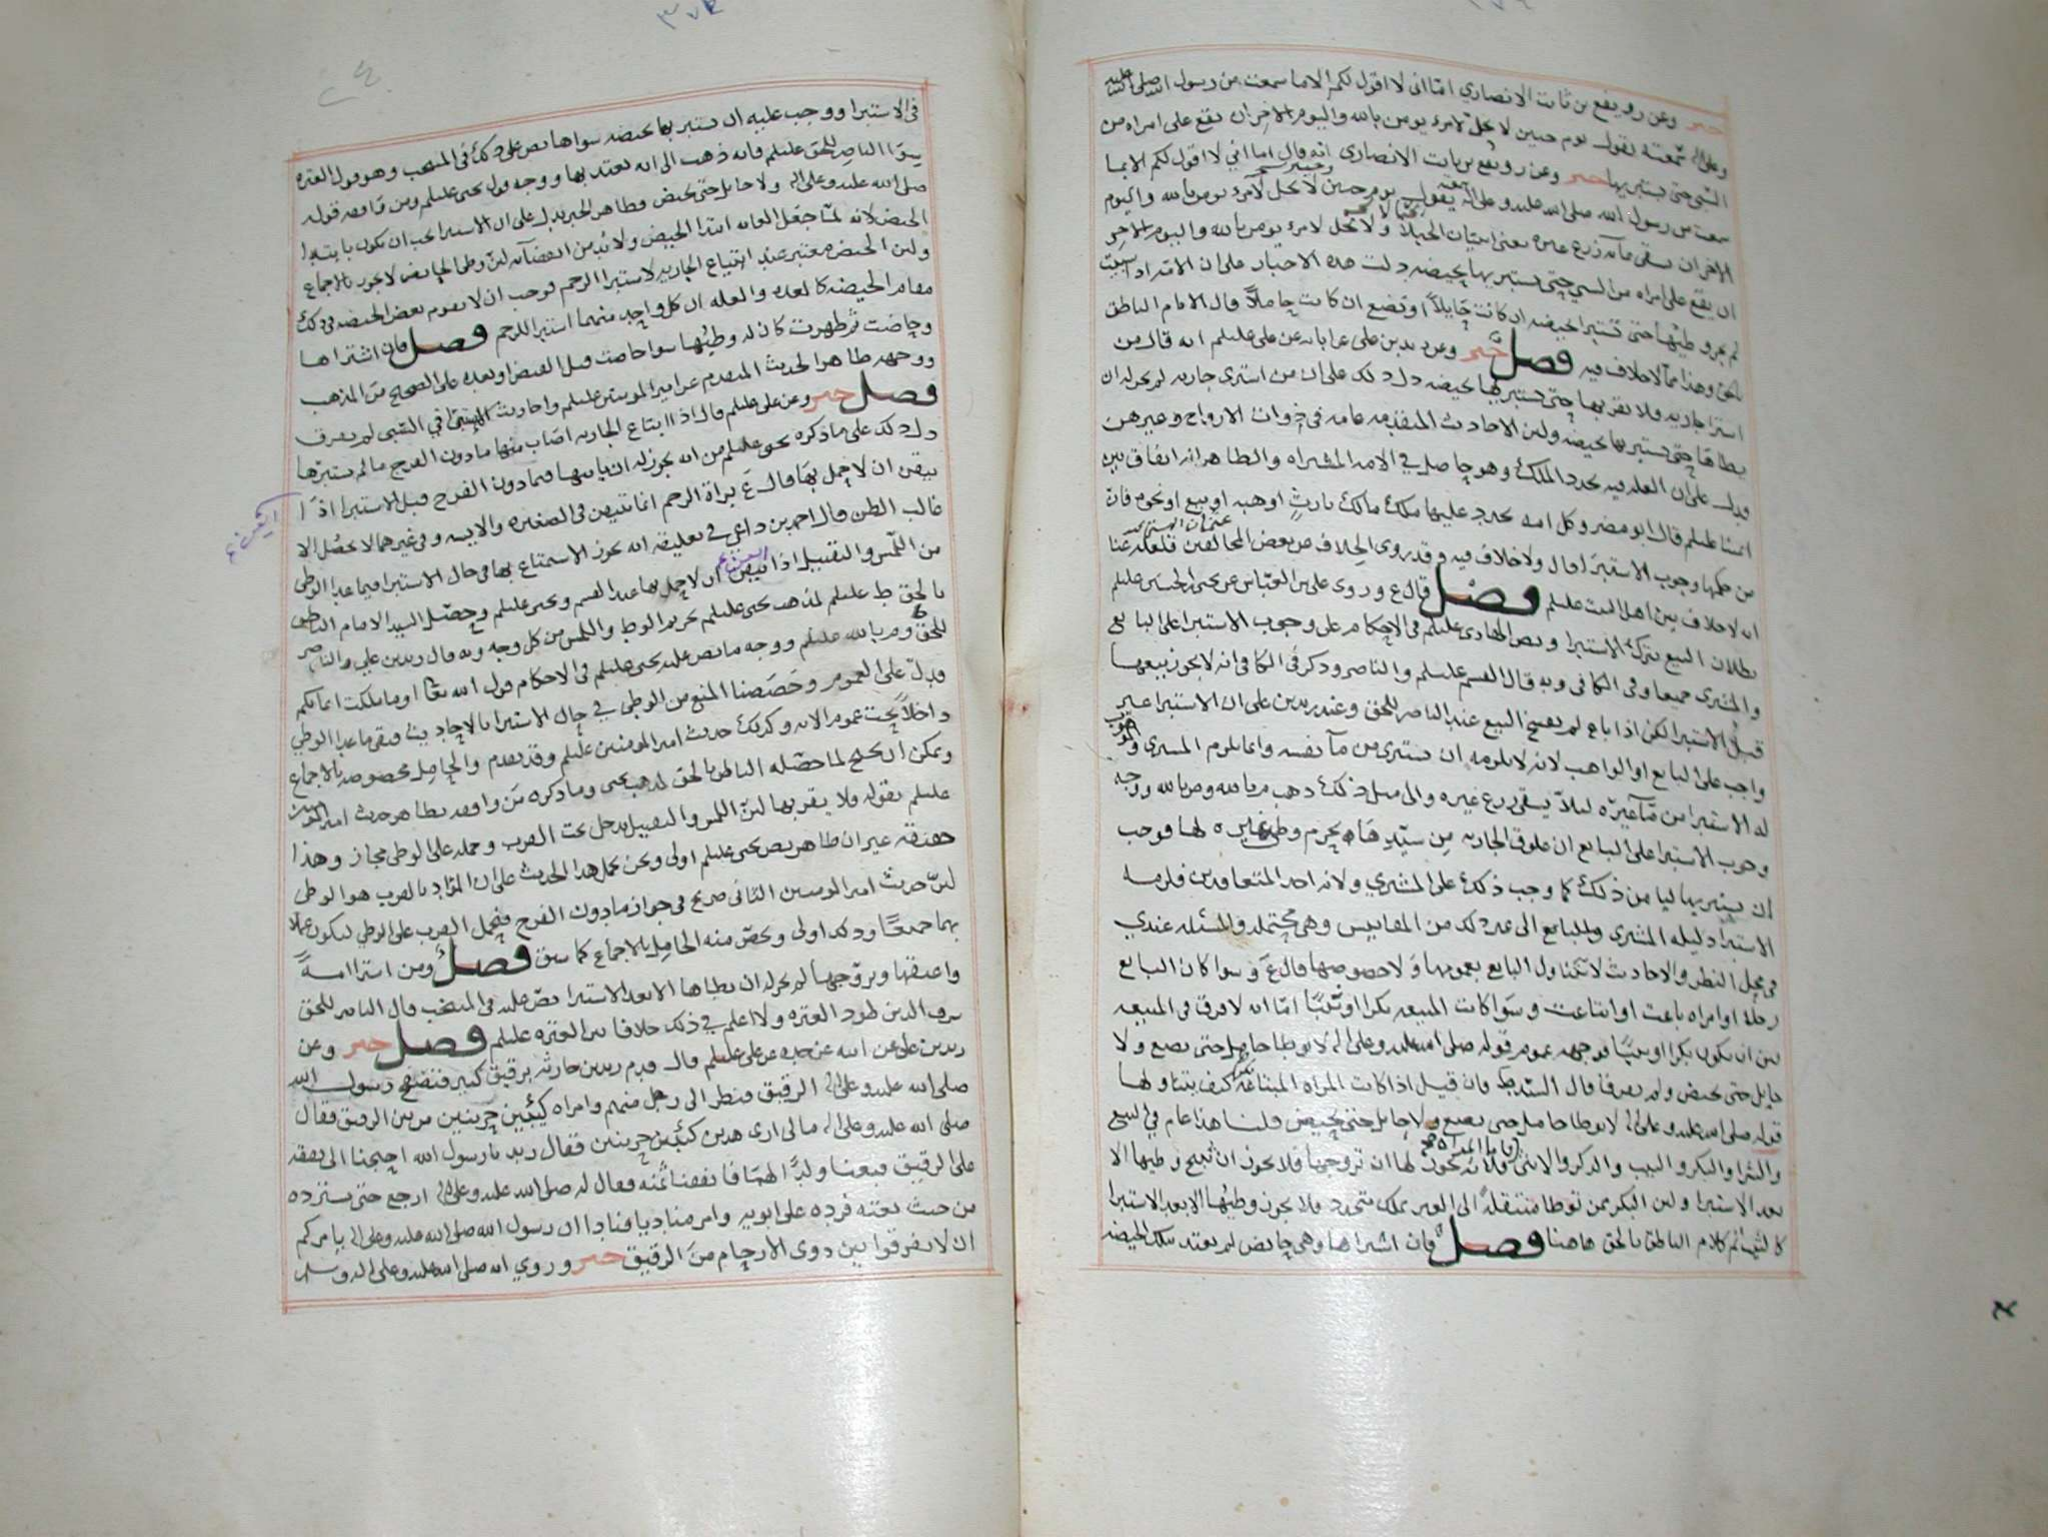 خبر وعن رويفع بن ثابت الانصاري اما اني لا اقول لكم الا ما سمعت من رسول الله صلى الله عليه
وعلى اله سمعته يقول يوم حنين لا يحل لامرء يومن بالله واليوم الاخر ان يقع على امراه من
السبي حتى يستبريها خبر وعن رويفع بن ثابت الانصاري انه قال اما اني لا اقول لكم الا بما
سمعت من رسول الله صلى الله عليه وعلى اله يقول يوم حنين لا يحل لامرء يومن بالله واليوم
الاخر ان يسقي ماءه زرع غيره يعني اتيان الحبالا ولا يحل لامرء يومن بالله واليوم الاخر
ان يقع على امراه من السبي حتى يستبريها بحيضه دلت هذه الاخبار على ان الامه اذا سبيت
لم يجز وطيها حتى تستبرا بحيضه ان كانت حايلا او تضع ان كانت حاملا قال الامام الناطق
بالحق وهذا مما لا خلاف فيه فصل خبر وعن زيد بن علي عن ابايه عن علي عليلم انه قال من
استرا جاريه فلا يقربها حتى يستبريها بحيضه دل ذلك على ان من اشترى جاريه لم يحز له ان
يطاها حتى يستبريها بحيضه ولان الاحاديث المتقدمه عامه في ذوات الازواج وغيرهن
ودل على ان العله فيه تجدد الملك وهو حاصل في الامه المشتراه والظاهر انه اتفاق بين
ائمتنا عليلم قال ابو مضر وكل امه تجدد عليها ملك مالك بارث او هبه او بيع او نحوه فان
من حكمها وجوب الاستبرا قال ولا خلاف فيه وقد روي الخلاف عن بعض المخالفين قلعله عنا
انه لا خلاف بين اهل البيت عليلم فصل قال ع وروى علي بن العباس عن يحيى بن الحسين عليلم
بطلان البيع بترك الاستبرا ونص الهادي عليلم في الاحكام على وجوب الاستبرا على البايع
والمشتري جميعا وفي الكافي وبه قال القسم عليلم والناصر وذكر في الكافي انه لا يجوز بيعها
قبل الاستبرا لكن اذا باع لم يفسخ البيع عند الناصر للحق وعند زيد بن علي ان الاستبرا غير
واجب على البايع او الواهب لانه لا يلزمه ان يستبري من مآ نفسه وانما يلزم المشتري
له الاستبرا من مآ غيره ليلا يسقي زرع غيره والى مثل ذلك ذهب م بالله وص بالله ووجه
وجوب الاستبرا على البايع ان علوق الجاريه من سيدها يحرم وطي غيره لها فوجب
ان يستبريها ليامن ذلك كما وجب ذلك على المشتري ولانه احد المتعاقدين فلزمه
الاستبرا دليله المشتري وللبايع الى غير ذلك من المقاييس وهي محتمله والمسئله عندي
في محل النظر والاحاديث لا تتناول البايع بعمومها ولا خصوصها قال ع وسوا كان البايع
رجلا او امراه باعت او ابتاعت وسوا كانت المبيعه بكرا او ثيبا اما انه لا فرق في المبيعه
بين ان يكون بكرا او ثيبا فوجهه عموم قوله صلى الله عليه وعلى اله لا توطا حامل حتى تضع ولا
حايل حتى تحيض ولم يفرقا قال السيد ط فان قيل اذا كانت المراه المبتاعه كيف يتناولها
قوله صلى الله عليه وعلى اله لا توطا حامل حتى تضع ولا حايل حتى تحيض قلنا هذا عام في البيع
والشرا والبكر والثيب والذكر والانثى فلانه يجوز لها ان تزوجها فلا يجوز ان تبيح وطيها الا
بعد الاستبرا ولان البكر ممن توطا منتقله الى الغير بملك متجدد فلا يجوز وطيها الا بعد الاستبرا
كالثيب تم كلام الناطق بالحق هاهنا فصل فان اشتراها وهي حايض لم يعتد بتلك الحيضه
في الاستبرا ووجب عليه ان يستبريها بحيضه سواها نص على ذلك في المنتخب وهو قول العتره
سوا الناصر للحق عليلم فانه ذهب الى انه يعتد بها ووجه قول يحيى عليلم ومن وافقه قوله
صلى الله عليه وعلى اله ولا حايل حتى تحيض وظاهر الخبر يدل على ان الاستبرا يجب ان يكون بابتدا
الحيض لانه لما جعل الغايه ابتدا الحيض ولابد من انقضآئه لان وطي الحايض لا يجوز بالاجماع
ولان الحيض معتبر عند ابتياع الجاريه لاستبرا الرحم فوجب ان لا يقوم بعض الحيضه في ذلك
مقام الحيضه كالعده والعله ان كل واحد منهما استبرا للرحم فصل فان اشتراها
وحاضت ثم طهرت كان له وطيها سوا حاضت قبل القبض او بعده على الصحيح من المذهب
ووجهه ظاهر الحديث المتقدم عن امير المومنين عليلم واحاديث السبي في السبي لم يفرق
فصل خبر وعن علي عليلم قال اذا ابتاع الجاريه اصاب منها ما دون الفرج ما لم يستبرها
دل ذلك على ما ذكره يحيى عليلم من انه يجوز له ان ياتيها فيما دون الفرج قبل الاستبرا اذا
تيقن ان لا حمل بها قال ع براة الرحم انما تتيقن في الصغيره والايسه وفي غيرهما لا يحصل الا
غالب الظن قال احمد بن داعي في تعليقه انه يجوز الاستمتاع بها في حال الاستبرا فيما عدا الوطي
من اللمس والتقبيل اذا تيقن ان لا حمل بها عند القسم ويحيى عليلم وحصل السيد الامام الناطق
بالحق ط عليلم لمذهب يحيى عليلم تحريم الوطي واللمس من كل وجه وبه قال زيد بن علي والناصر
للحق وم بالله عليلم ووجه ما نص عليه يحيى عليلم في الاحكام قول الله تعا او ما ملكت ايمانكم
فدل على العموم وخصصنا المنع من الوطي في حال الاستبرا بالاحاديث وبقي ما عدا الوطي
داخلا تحت عموم الايه وكذلك حديث امير المومنين عليلم وقد تقدم والحامل مخصوصه بالاجماع
ويمكن ان يحتج لما حصله الناطق بالحق لمذهب يحيى وما ذكره من وافقه بظاهر حديث امير المومنين
عليلم بقوله ولا يقربها لان اللمس والتقبيل يدخل تحت القرب وحمله على الوطي مجاز وهذا
حقيقه غير ان ظاهر نص يحيى عليلم اولى ونحن نحمل هذا الحديث على ان المراد بالقرب هو الوطي
لان حديث امير المومنين الثاني صريح في جواز ما دون الفرج فيحمل القرب على الوطي ليكون عملا
بهما جميعا وذلك اولى ويخص منه الحامل بالاجماع كما سبق فصل ومن استرا امة
واعتقها وتزوجها لم يجز له ان يطاها الا بعد الاستبرا نص عليه في المنتخب قال الناصر للحق
شرف الدين طود العتره ولا اعلم في ذلك خلافا بين العتره عليلم فصل خبر وعن
زيد بن علي عن ابيه عن جده عن علي عليلم قال قدم زيد بن حارثه برقيق كثير فتصفح رسول الله
صلى الله عليه وعلى اله الرقيق فنظر الى رجل منهم وامراه كئيبين حزينين من بين الرقيق فقال
صلى الله عليه وعلى اله ما لي ارى هذين كئيبين حزينين فقال زيد يا رسول الله احتجنا الى نفقه
على الرقيق فبعنا ولدا لهما فانفقنا ثمنه فقال له صلى الله عليه وعلى اله ارجع حتى تسترده
من حيث بعته فرده على ابويه وامر مناديا فنادا ان رسول الله صلى الله عليه وعلى اله يامركم
ان لا تفرقوا بين ذوي الارحام من الرقيق خبر وروي انه صلى الله عليه وعلى اله وسلم